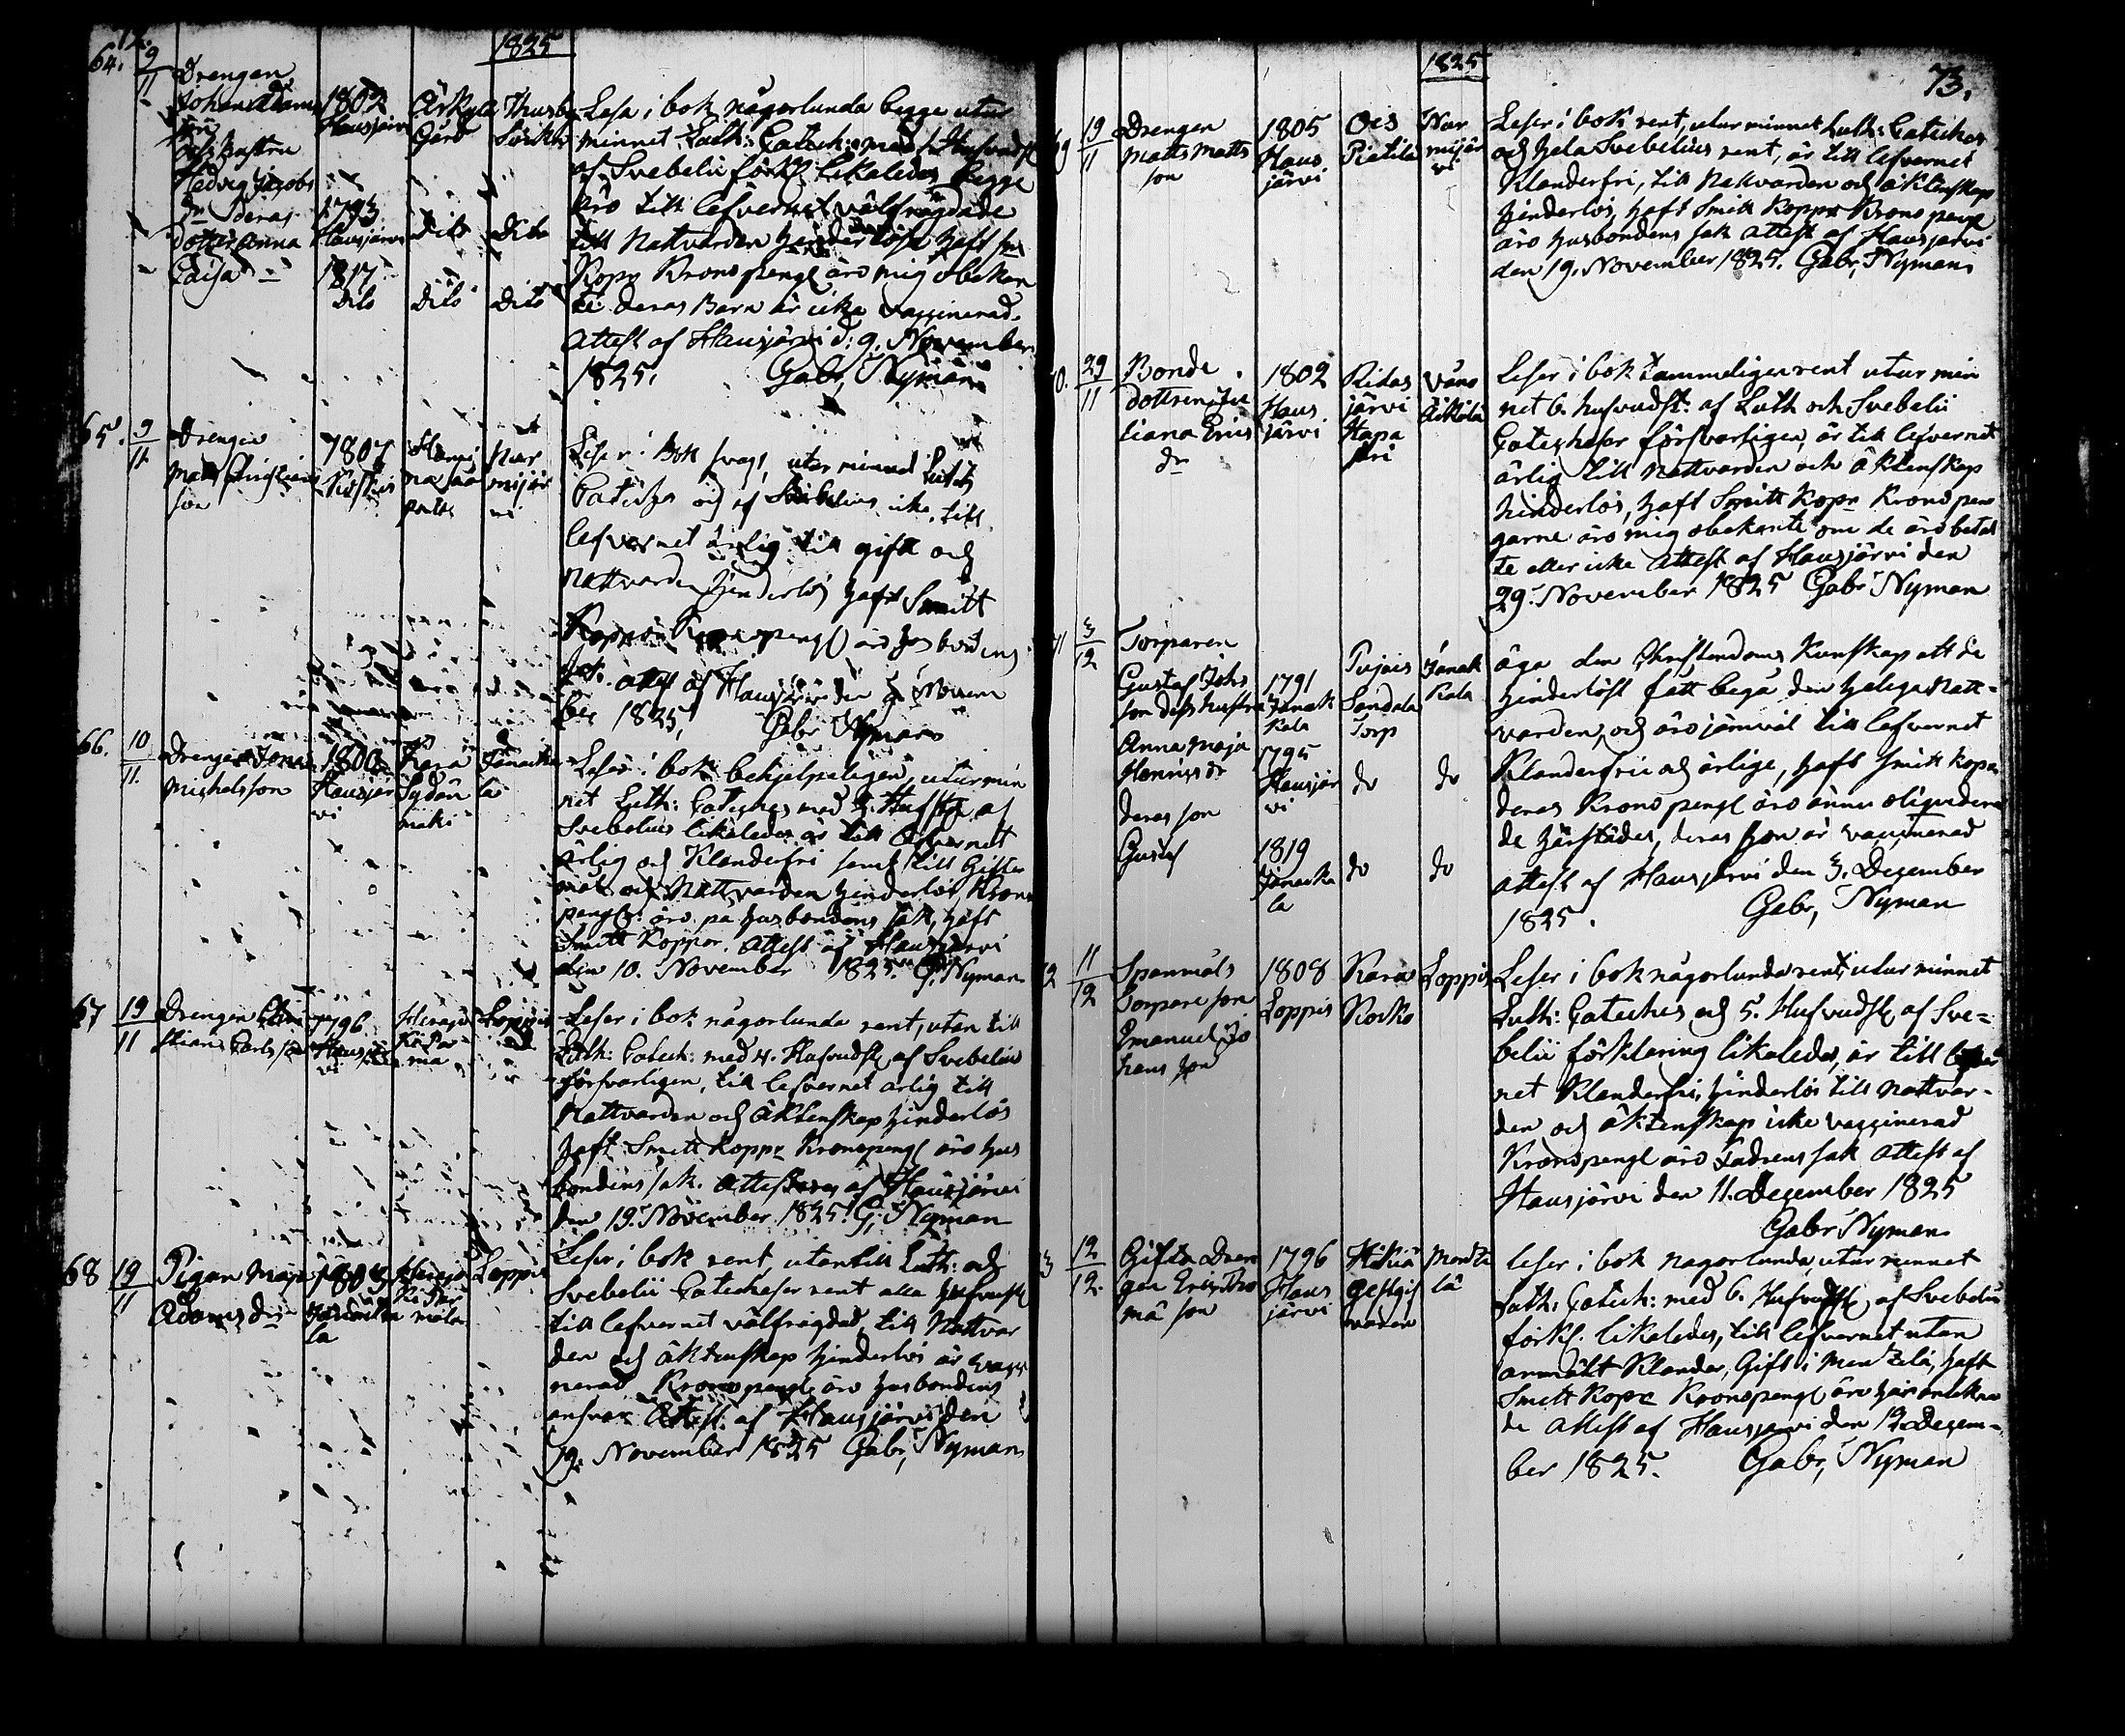 72.
1825
64. 9/11 Drengen
Johan Adams
son
och hustru
Hedvig Jacobs
dr Deras
dotter Anna
Caisa
1802
Hausjärvi
1793
Hausjärvi
1817
Dito
Gård
Dito
Dito
Thusby
Dito
Dito
Läsa i bok någorlunda begge utur
minnet Luth: Catech: med
af Svebelii förkl likaledes begge
äro till lefvernet välfrägdade
till Nattvarden hinderlösa haft sm
Kopr Kronopengl äro mig obekan
te deras Barn är icke vaccinerad.
Attest af Hausjärvi d: 9. November
1825. Gabr, Nyman
65. 9/11 Drengen
Matts Christians
son
1807
Nur
mijär
vi
Leser i Bok svagt, utur minnet Luth
Catches och af Svebelius icke, till
lefvernet ärlig till gifte och
Nattvarden hinderlös haft Smitt
Koppor Kronopengl äro husbondens
sak. Attest af Hausjärvi den 9 Novem
ber 1825, Gabr Nyman
66. 10/11. Drengen Jonas
Michelsson
1800
Hausjär
vi
Kara
Sydän
mäki
Janacka
la
Leser i bok behjelpeligen, utur min
net Luth: Cateches med 3. Hufstyk af
Svebelius likaledes är till lefvernet
ärlig och Klanderfri samt till Gifter
mål och Nattvarden hinderlös, Krono
pengl: äro på husbondens sak, haft
Smitt Koppor. Attest af Hausjärvi
den 10. November 1825. G. Nyman
67 19/11 Drengen Chri
stian Carls son
1796
Hausjär
vi
Loppis
Leser i bok någorlunda rent, utan till
Luth: Catech: med 4. Hufvudst af Svebelius
försvarligen, till lefvernet ärlig till
Nattvarden och Äktenskap hinderlös
haft Smitt Koppr Kronopengl äro hus
bondens sak. Attesteras af Hausjärvi
den 19. November 1825. G, Nyman
68 19/11 Pigan Maja
Adams dr
1803
Janacka
la
Loppis
Leser i bok rent, utantill Luth: och
Svebelii Catecheser rent alla hufvudst
till lefvernet välfrägdad, till Nattvar
den och äktenskap hinderlös är vacci
nerad Kronopengl äro husbondens
ansvar Attest. af Hausjärvi den
19. November 1825 Gabr, Nyman
1825
73.
69 19/11 Drengen
Matts Matts
son
1805
Haus
järvi
Ois
Pietilä
Nur
mijär
vi
Leser i bok rent, utur minnet Luth: Catechес
och hela Svebelius rent, är till lefvernet
Klanderfri, till Nattvarden och äktenskap
hinderlös, haft Smitt Koppr Kronopengl
äro husbondens sak Attest af Hausjärvi
den 19. November 1825. Gabr, Nyman
70. 29/11 Bonde
dottren Ju
liana Erics
dr
1802
Haus
järvi
Ridas
järvi
Väno
Leser i bok tammeligen rent utur min
net 6. hufvudst: af Luth och Svebelii
Catecheser försvarligen, är till lefvernet
ärlig till Nattvarden och äktenskap
hinderlös, haft Smitt Kopr Kronopen
garne äro mig obekante om de äro betal
te eller icke Attest af Hausjärvi den
29. November 1825 Gabr Nyman
71 3/12 Torparen
Gustaf Johs
son dess hustru
Anna Maja
Henrics dr
deras son
Gustaf
1791
Janak
kala
1795
Hausjär
vi
1819
Janacka
la
Torp
do
do
Janak
kala
do
do
äga den Christendoms Kunskap att de
hinderlöst fått begå den heliga Natt-
varden, och äro jämväl till lefvernet
Klanderfrie och ärlige, haft Smitt kopr
deras Kronopengl äro ännu oliquidera
de härstädes, deras son är vaccinerad
attest af Hausjärvi den 3. December
1825. Gabr, Nyman
72 11/12 Spannmåls
Torpare son
Emanuel Jo
hans son
1808
Loppis
Kara
Kosko
Loppis
Leser i bok någorlunda rent, utur minnet
Luth: Cateches och 5. Hufvudst af Sve-
belii förklaring likaledes, är till lefver
net Klanderfri, hinderlös till Nattvar-
den och äktenskap icke vaccinerad
Kronopengl äro Fadrens sak Attest af
Hausjärvi den 11. December 1825
Gabr Nyman
73 12/12. Gifta Dren
gen Eric Tho
mä son
1796
Haus
järvi
Hikiä
gestgif
varen
Mentze
lä
leser i bok någorlunda, utur minnet
Luth: Catech: med 6. Hufvudst af Svebelii
förkl. likaledes, till lefvernet utan
anmält Klander, Gift i Mentzelä, haft
Smitt Kopr Kronopengl äro här
de Attest af Hausjärvi den 12 Decem-
ber 1825. Gabr, Nyman